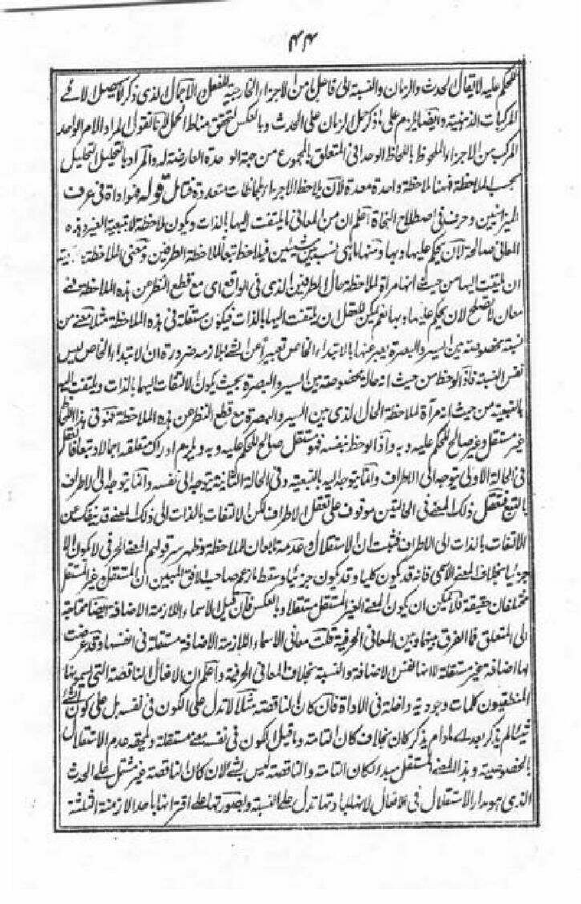 ۴۴
للحكم عليه لا يقال الحدث والزمان والنسبة الى فاعل ما من الاجزاء الخارجية للفعل الاجمال الذى ذكر لا يحصل الا فى
المركبات الذهنية وايضا يلزم على ما ذكر حمل الزمان على الحدث وبالعكس لتحقق مناط الحمل لانا نقول المراد الامر الواحد
المركب من الاجزاء والملحوظ باللحاظ الوحدانى المتعلق بالمجموع من جهة الوحدة العارضة له والمراد بالتحليل التحليل
بحسب الملاحظة فههنا ملاحظة واحدة معدة لان يلاحظ الاجزاء بملاحظات متعددة فتأمل قوله فهو اداة فى عرف
الميزانيين وحرف فى اصطلاح النحاة اعلم ان من المعانى ما يلتفت اليها بالذات ويكون ملاحظة لا بتبعية الغير وهذه
المعانى صالحة لان يحكم عليها وبها ومنها ما هى نسبة بين شيئين فيلاحظ تبعا لملاحظة الطرفين ومعنى الملاحظة
ان يلتفت اليها من حيث انها مرآة لملاحظة حال الطرفين الذى فى الواقع اى مع قطع النظر عن هذه الملاحظة فهى
معان لا تصلح لان يحكم عليها وبها نعم يمكن للعقل ان يلتفت اليها بالذات فيكون مستقلة فى هذه الملاحظة مثلا معنى من
نسبة مخصوصة بين السير والبصرة يعبر عنها بالابتداء الخاص تعبيرا عن الشئ بلازمه ضرورة ان الابتداء الخاص ليس
نفس النسبة فاذا لوحظ من حيث انه حالة مخصوصة بين السير والبصرة بحيث يكون الالتفات اليها بالذات ويلتفت اليه
بالتبعية من حيث انه مرآة لملاحظة الحال الذى بين السير والبصرة مع قطع النظر عن هذه الملاحظة فهو فى هذا اللحاظ
غير مستقل وغير صالح للحكم عليه وبه واذا لوحظ بنفسه فهو مستقل صالح للحكم عليه وبه ويلزم ادراك متعلقه اجمالا وتبعا فالعقل
فى الحالة الاولى يتوجه الى الاطراف وانما يتوجه اليه بالتبعية وفى الحالة الثانية يتوجه الى نفسه وانما يتوجه الى الاطراف
بالتبع فتعقل ذلك المعنى فى الحالتين موقوف على تعقل الاطراف لكن الالتفات بالذات الى ذلك المعنى قد ينفك عن
الالتفات بالذات الى الاطراف فثبت ان الاستقلال وعدمه تابعان للملاحظة وظهر سر قولهم المعنى الحرفى لا يكون الا
جزئيا بخلاف المعنى الاسمى فانه قد يكون كليا وقد يكون جزئيا وسقط ما زعم صاحب الافق المبين ان المستقل وغير المستقل
مختلفان حقيقة فلا يمكن ان يكون المعنى الغير المستقل مستقلا وبالعكس فان قيل الاسماء اللازمة الاضافة ايضا محتاجة
الى المتعلق فما الفرق بينها وبين المعانى الحرفية قلت معانى الاسماء اللازمة الاضافة مستقلة فى انفسها وقد عرضت
لها اضافة غير مستقلة لا انها نفس الاضافة والنسبة بخلاف المعانى الحرفية واعلم ان الافعال الناقصة التى يسميها
المنطقيون كلمات وجودية داخلة فى الاداة فان كان الناقصة مثلا لا تدل على الكون فى نفسه بل على كون الشئ
شيئا لم يذكر بعد اى مادام يذكر كان بخلاف كان التامة وما قيل الكون فى نفسه معنى مستقلة ويلحقه عدم الاستقلال
بالخصوصية وهذا المعنى المستقل مبدأ لكان التامة والناقصة ليس بشئ لان كان الناقصة غير مشتمل على الحدث
الذى هو مدار الاستقلال فى الافعال لانها بمادتها تدل على النسبة وبصورتها على اقترانها باحد الازمنة الثلثة